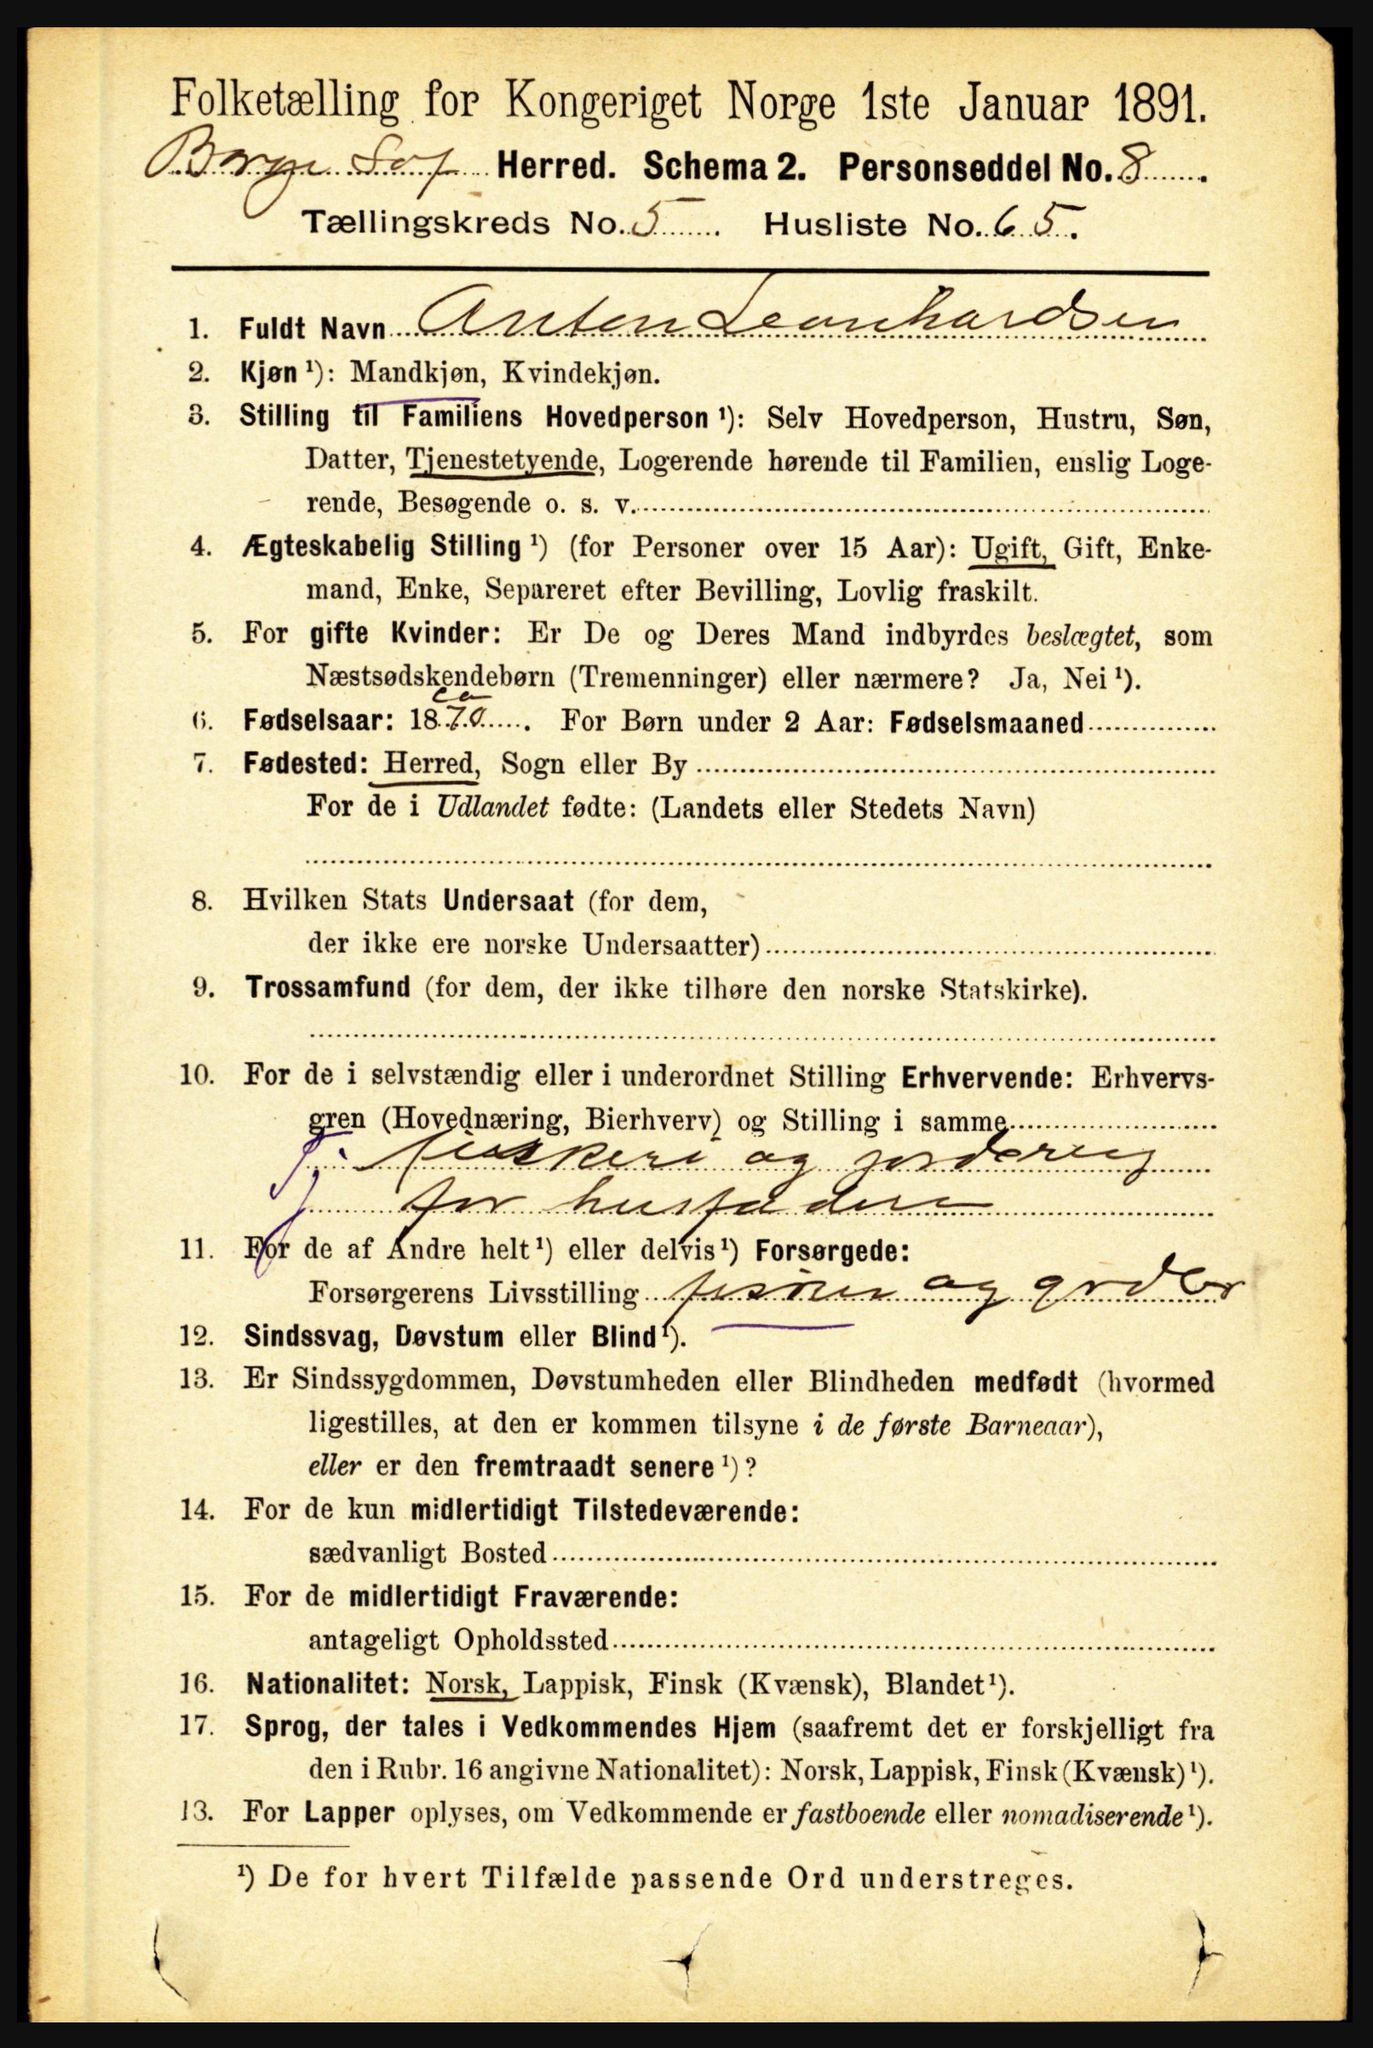 Folketælling for Kongeriget Norge 1ste Januar 1891.
Borge Lof Herred. Schema 2. Personseddel No. 8
Tællingskreds No. 5 Husliste No. 65.
1. Fuldt Navn Anton Leonhardsen
2. Kjøn ¹): Mandkjøn, Kvindekjøn.
3. Stilling til Familiens Hovedperson ¹): Selv Hovedperson, Hustru, Søn,
Datter, Tjenestetyende, Logerende hørende til Familien, enslig Loge-
rende, Besøgende o. s. v.
4. Ægteskabelig Stilling ¹) (for Personer over 15 Aar): Ugift, Gift, Enke-
mand, Enke, Separeret efter Bevilling, Lovlig fraskilt.
5. For gifte Kvinder: Er De og Deres Mand indbyrdes beslægtet, som
Næstsødskendebørn (Tremenninger) eller nærmere? Ja, Nei ¹).
ca
6. Fødselsaar: 1870. For Børn under 2 Aar: Fødselsmaaned
7. Fødested: Herred, Sogn eller By
For de i Udlandet fødte: (Landets eller Stedets Navn)
8. Hvilken Stats Undersaat (for dem,
der ikke ere norske Undersaatter)
9. Trossamfund (for dem, der ikke tilhøre den norske Statskirke).
10. For de i selvstændig eller i underordnet Stilling Erhvervende: Erhvervs-
gren (Hovednæring, Bierhverv) og Stilling i samme
Tj. fiskeri og jordbrug
for husfaderen
11. For de af Andre helt ¹) eller delvis ¹) Forsørgede:
Forsørgerens Livsstilling fisker og
12. Sindssvag, Døvstum eller Blind ¹).
13. Er Sindssygdommen, Døvstumheden eller Blindheden medfødt (hvormed
ligestilles, at den er kommen tilsyne i de første Barneaar),
eller er den fremtraadt senere ¹)?
14. For de kun midlertidigt Tilstedeværende:
sædvanligt Bosted
15. For de midlertidigt Fraværende:
antageligt Opholdssted
16. Nationalitet: Norsk, Lappisk, Finsk (Kvænsk), Blandet ¹).
17. Sprog, der tales i Vedkommendes Hjem (saafremt det er forskjelligt fra
den i Rubr. 16 angivne Nationalitet): Norsk, Lappisk, Finsk (Kvænsk) ¹).
13. For Lapper oplyses, om Vedkommende er fastboende eller nomadiserende ¹).
¹) De for hvert Tilfælde passende Ord understreges.